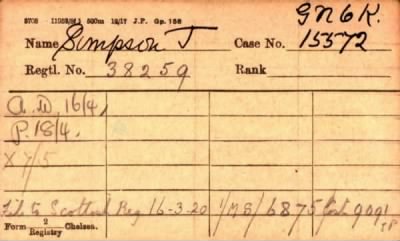 5708 (1952/51) 500m 12/17 J.P. Gp.158
GN6K.
Name Simpson J Case No. 15572
Regtl. No. 38259 Rank
A.D. 16/4,
P. 18/4.
X 7/5
File to Scotland Reg 16-3-20 1/MS/6875
Form 2 Registry Chelsea.